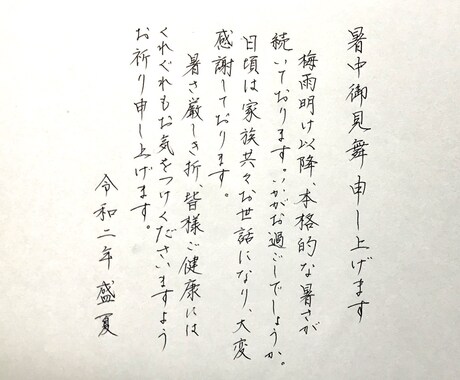 暑中御見舞申し上げます
梅雨明け以降、本格的な暑さが
続いております。いかがお過ごしでしょうか。
日頃は家族共々お世話になり、大変
感謝しております。
暑さ厳しき折、皆様ご健康には
くれぐれもお気をつけくださいますよう
お祈り申し上げます。
令和二年盛夏